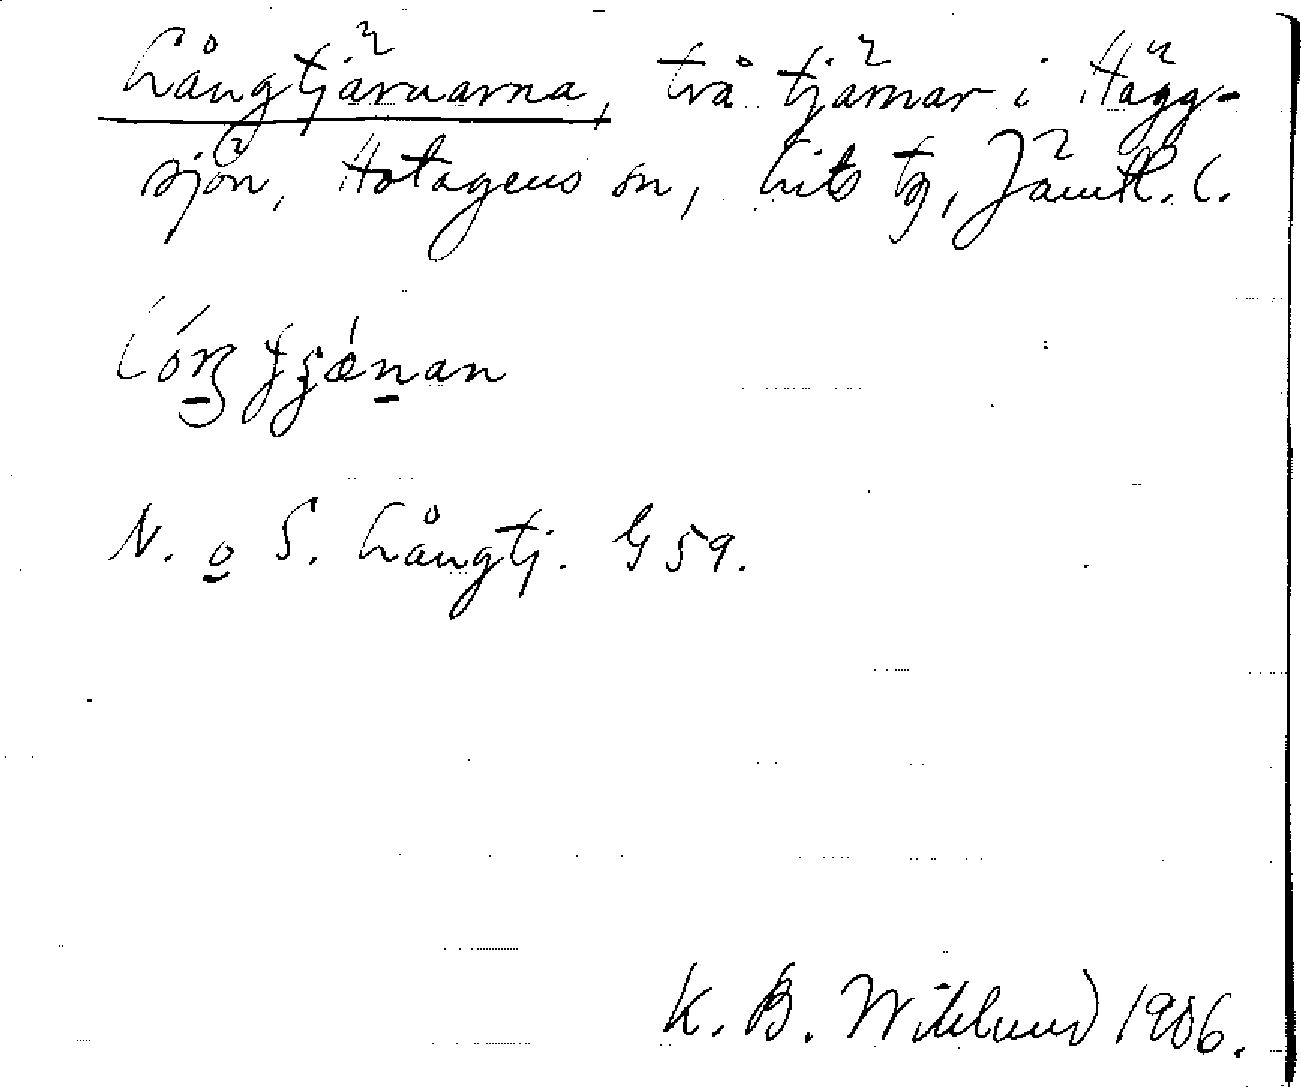 Långtjärnarna, två tjärnar i Hägg-
sjön, Hotagens sn, Lits tg, Jämtl. l.
Lóŋ tjǽnan
N. o S. Långtj. G 59.
K. B. Wiklund 1906.